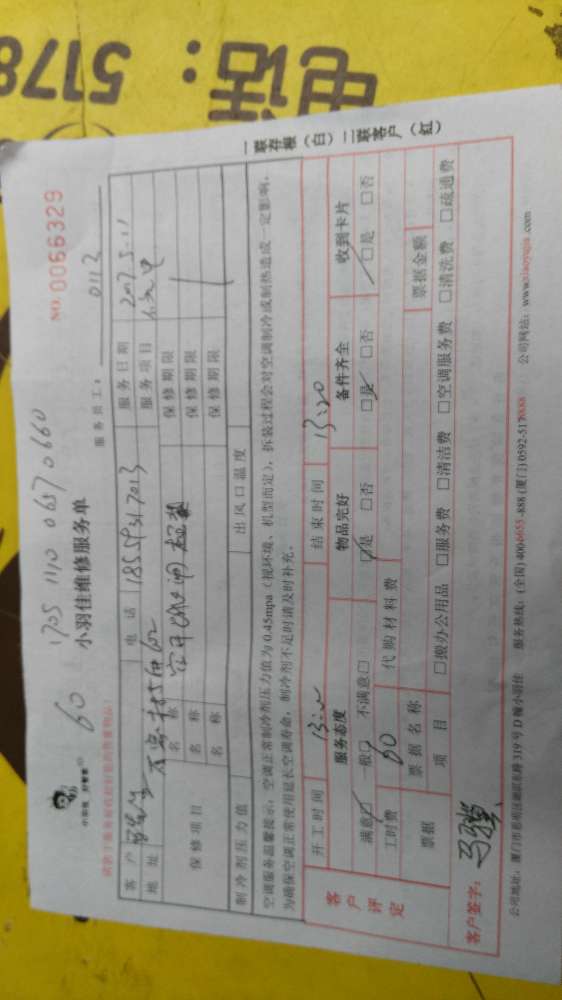 电话：
5178
一联存根（白）二联客户（红）
NO.0066329
60 1705 1110 0637 0660
小羽佳维修服务单
服务员工：0113
客户 电话 18559317013 服务日期 2017.5.11
地址 服务项目
保修项目
名称 保修期限
名称 保修期限
名称 保修期限
制冷剂压力值 出风口温度
空调服务温馨提示：空调正常制冷剂压力值为0.45mpa（视环境、机型而定），拆装过程会对空调制冷或制热造成一定影响，
为确保空调正常使用延长空调寿命，制冷剂不足时请及时补充。
客户评定
开工时间 结束时间 13:20
服务态度 物品完好 备件齐全 收到卡片
满意□ 一般□ 不满意□ □是 □否 □是 □否 □是 □否
工时费 代购材料费
票据 票据名称 票据金额
项目 □搬办公用品 □服务费 □清洁费 □空调服务费 □清洗费 □疏通费
客户签字：
公司地址：厦门市思明区湖滨东路319号D幢小羽佳 服务热线：（全国）400-6655-888（厦门）0592-5178888 公司网站：www.xiaoyujia.com